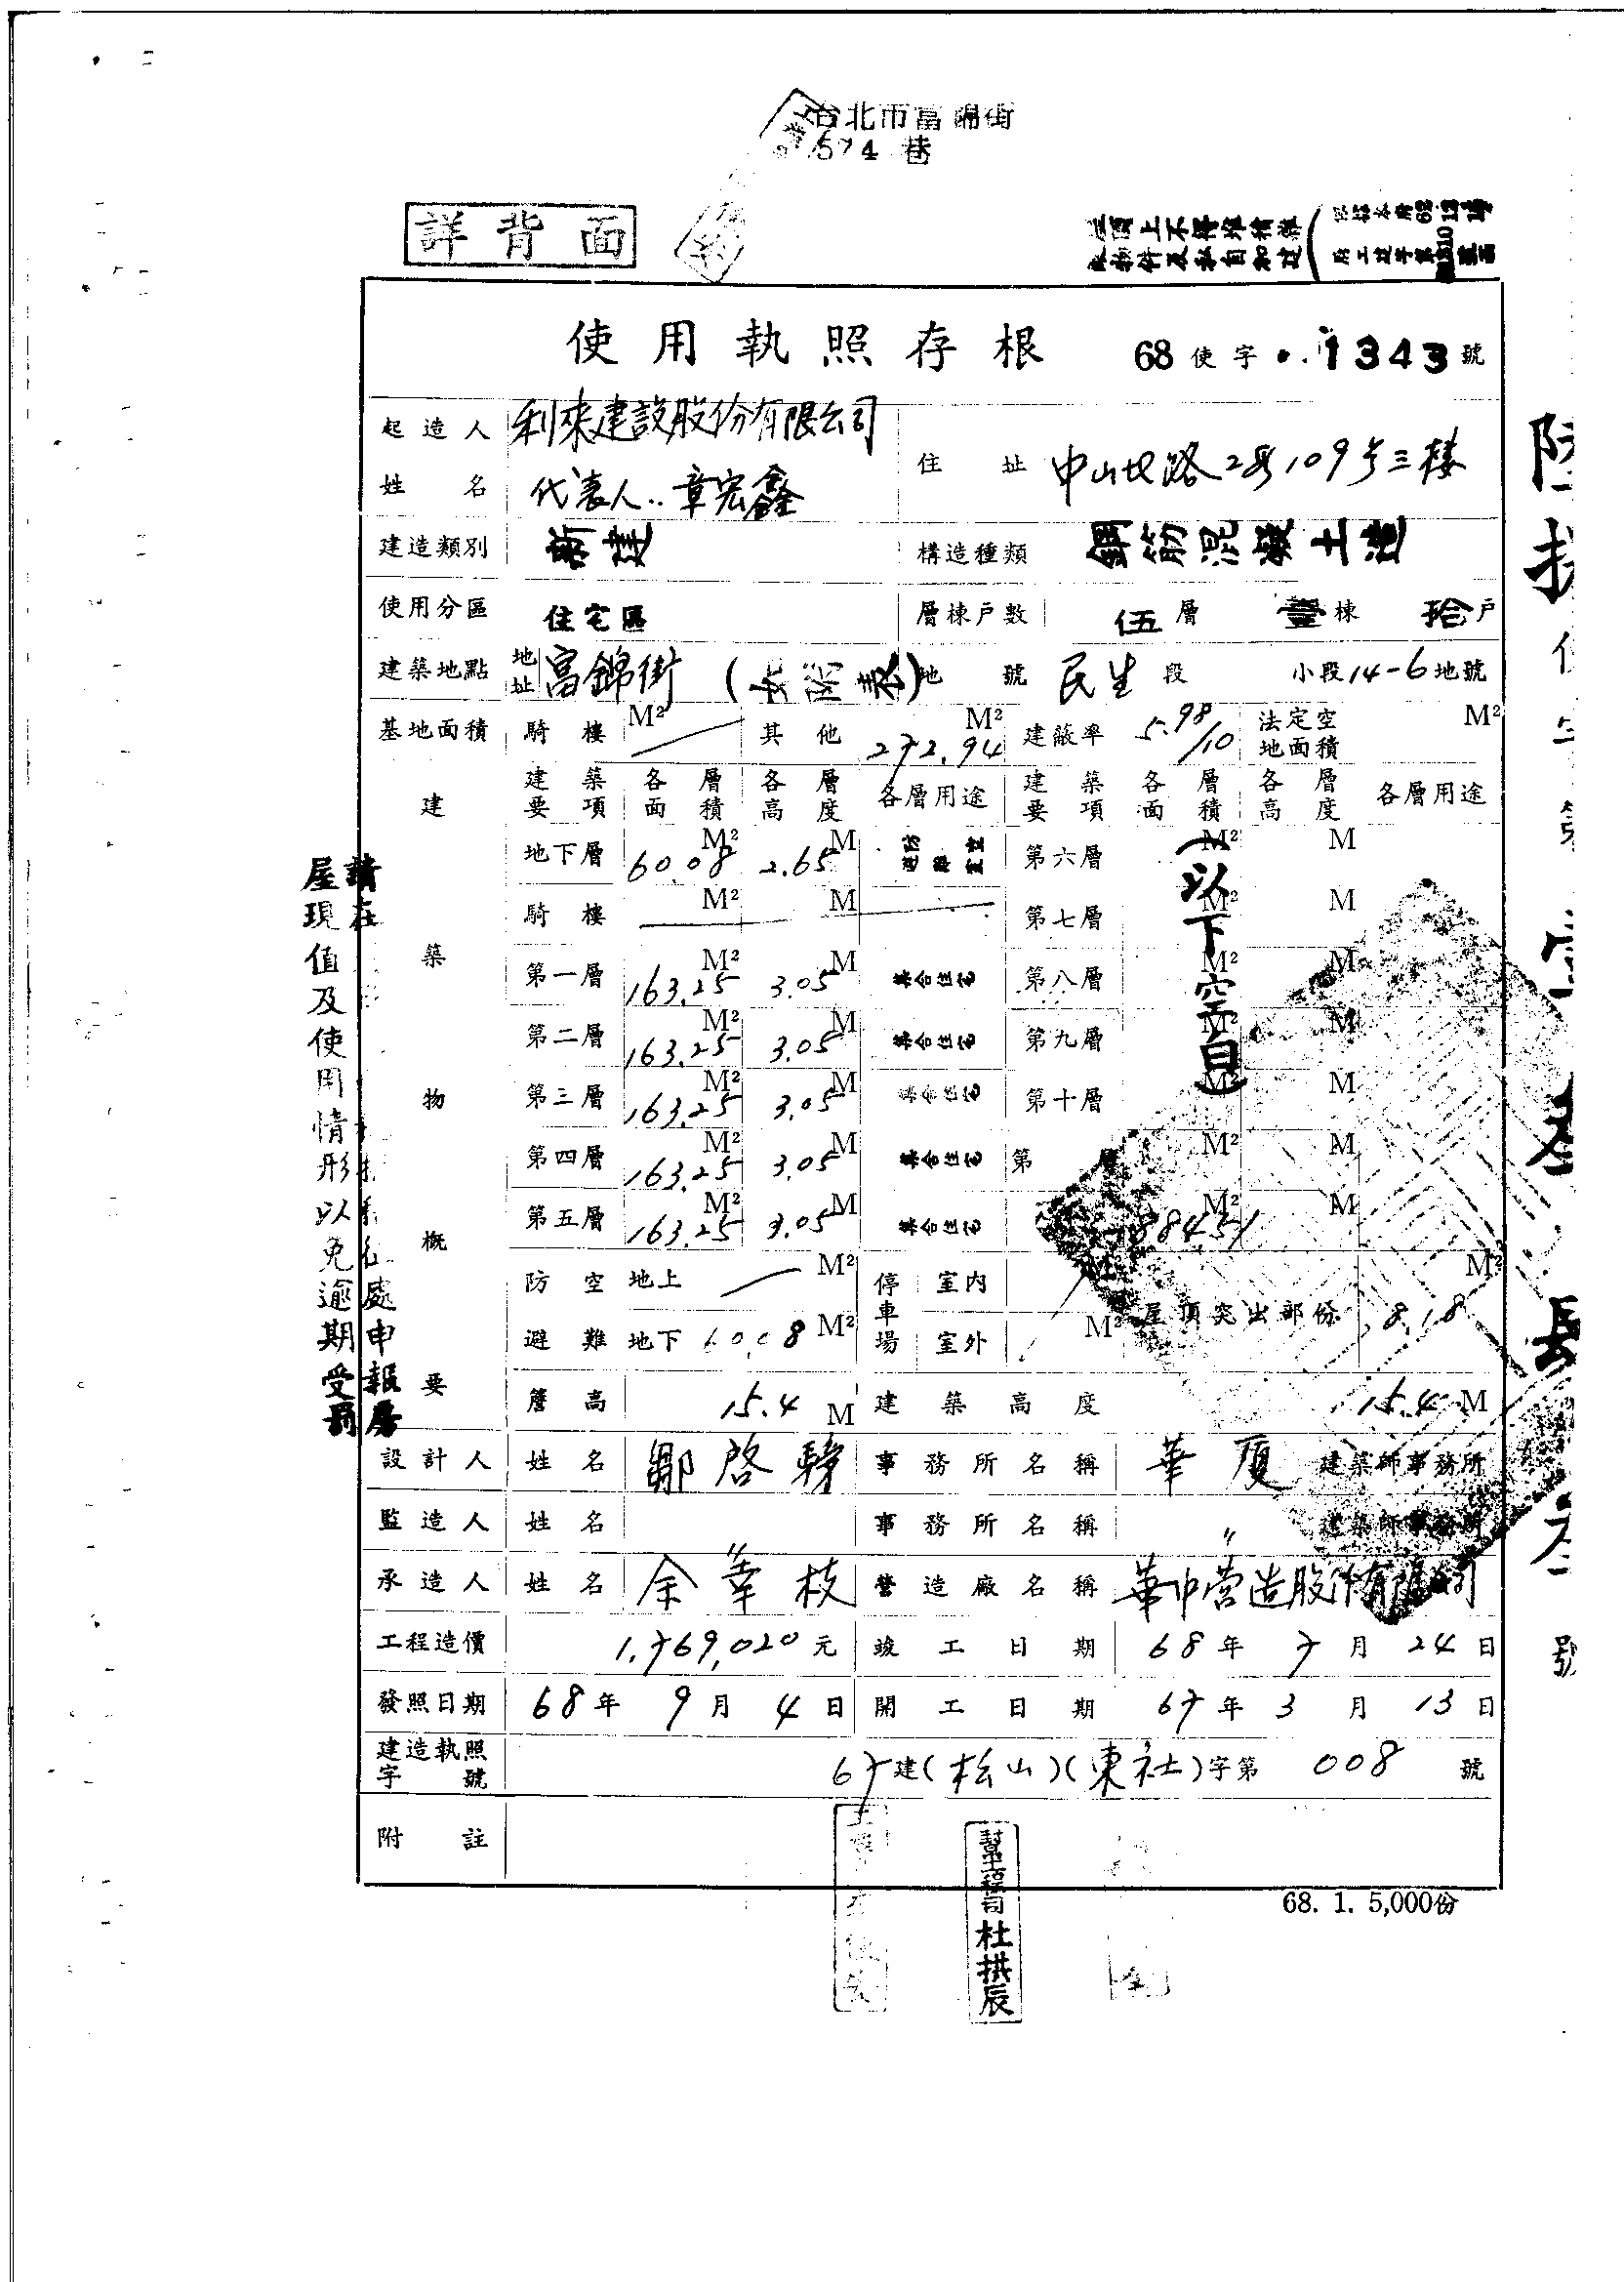 台北市富錦街
574巷
詳背面
使用執照存根 68使字 1343號
起造人姓名 利來建設股份有限公司 代表人..章宏鑫 住址 中山北路2段109号三楼
建造類別 新建 構造種類 鋼筋混凝土造
使用分區 住宅區 層棟戶數 伍層 壹棟 拾戶
建築地點 地址 富錦街(如附表) 地號 民生段 小段14-6地號
基地面積 騎樓 M² 其他 272.94 M² 建蔽率 5.98/10 法定空地面積 M²
建築物概要
建築要項 各層面積 各層高度 各層用途 建築要項 各層面積 各層高度 各層用途
地下層 60.08 M² 2.65 M 第六層 M² M
騎樓 M² M 第七層 M² M
第一層 163.25 M² 3.05 M 集合住宅 第八層 M² M
第二層 163.25 M² 3.05 M 集合住宅 第九層 M² M
第三層 163.25 M² 3.05 M 集合住宅 第十層 M² M
第四層 163.25 M² 3.05 M 集合住宅 第 層 M² M
第五層 163.25 M² 3.05 M 集合住宅 884.51 M² M
(以下空白)
防空避難 地上 M² 停車場 室內 M² 屋頂突出部份 8.18 M²
地下 60.08 M² 室外 M²
簷高 15.4 M 建築高度 15.4 M
設計人 姓名 鄒啓騂 事務所名稱 華厦 建築師事務所
監造人 姓名 〃 事務所名稱 〃 建築師事務所
承造人 姓名 余幸枝 營造廠名稱 華中营造股份有限公司
工程造價 1,769,020元 竣工日期 68年7月24日
發照日期 68年9月4日 開工日期 67年3月13日
建造執照字號 67建(松山)(東社)字第008號
附註
68. 1. 5,000份
幫工程司 杜拱辰